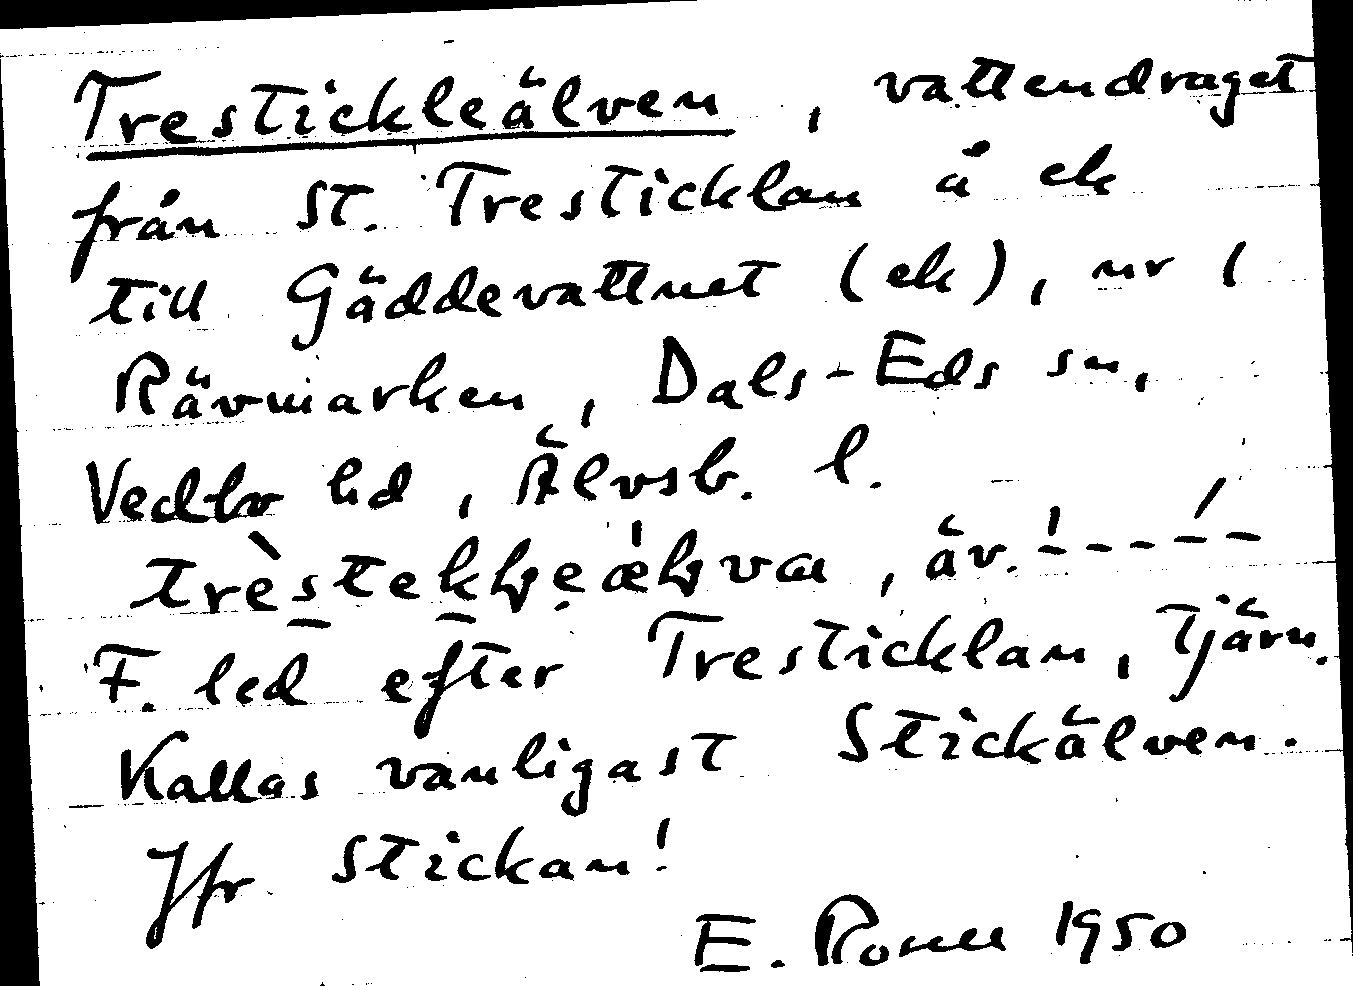 Tresticklеälven, vattendraget
från St. Tresticklan å ek
till Gäddevattnet (ek), nr 1
Rävmarken, Dals-Eds sn,
Vedbo hd, Älvsb. l.
F. led efter Tresticklan, tjärn.
Kallas vanligast Stickälven.
Jfr Stickan!
E. 1950